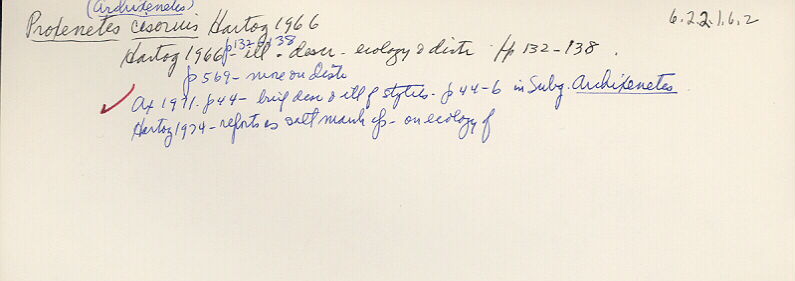 (Archixenetes)
Proxenetes cisorius Hartog 1966 6.22.1.6.2
Hartog 1966 p132 p138 - ill - descr - ecology & distr pp 132-138.
p 569 - more on distr
Ax 1971. p 44 - brief descr & ill of stylets. p 44-6 in Subg. Archixenetes.
Hartog 1974 - reports as salt marsh sp - on ecology of